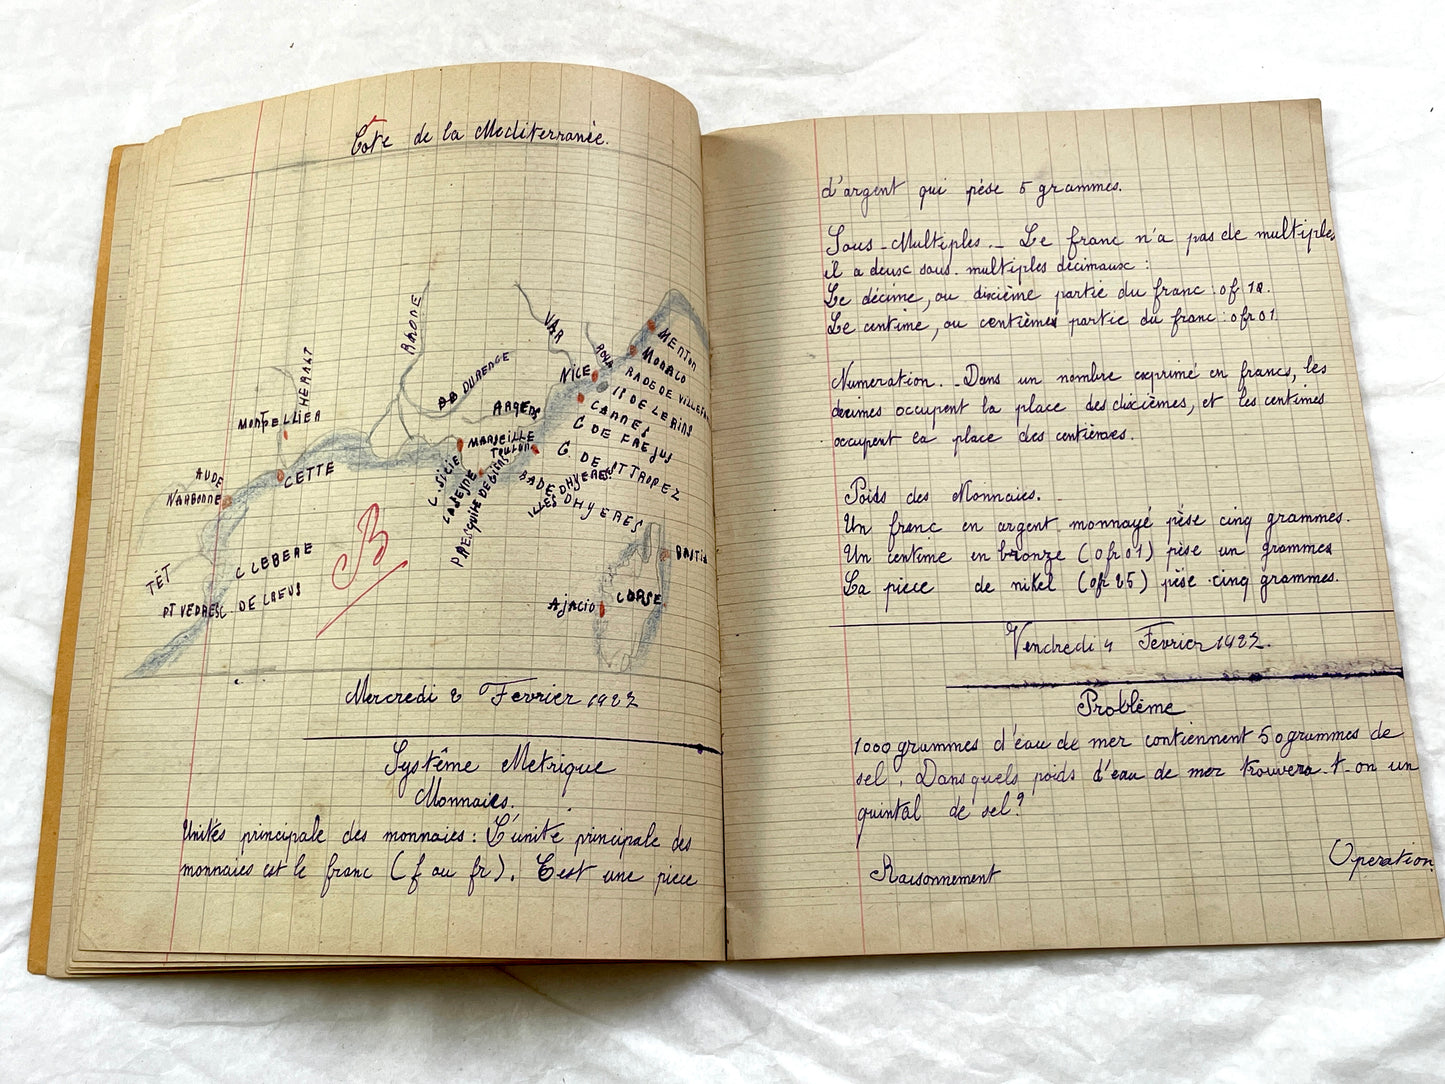 Côte de la Mediterranée.
RHONE
VAR
ROYA
MENTON
MONACO
HERALT
DURENCE
NICE
RADE DE VILLEFR
Is DE LERINS
MONTPELLIER
ARGENS
CANNES
G DE FREJUS
MARSEILLE
TOULON
G. DE ST TROPEZ
AUDE
CETTE
C. SICIE
LA SEYNE
PRESQUILE DE GIENS
RADE DHYERES
ILLES DHYERES
NARBONNE
B
BASTIA
C LEBERE
TÈT
PT VEDRES
C. DE CREUS
AJACIO
CORSE
Mercredi 2 Fevrier 1922
Systême Metrique
Monnaies.
Unités principale des monnaies : L'unité principale des
monnaies est le franc (f ou fr). C'est une pièce
d'argent qui pèse 5 grammes.
Sous-Multiples._ Le franc n'a pas de multiples
il a deux sous-multiples décimaux :
Le décime, ou dixième partie du franc : 0f 10.
Le centime, ou centième partie du franc : 0fr01
Numeration._ Dans un nombre exprimé en francs, les
decimes occupent la place des dixièmes, et les centimes
occupent la place des centièmes.
Poids des Monnaies._
Un franc en argent monnayé pèse cinq grammes.
Un centime en bronze (0fr01) pèse un grammes
La pièce de nikel (0fr25) pèse cinq grammes.
Vendredi 4 Fevrier 1922.
Problème
1000 grammes d'eau de mer contiennent 50 grammes de
sel. Dans quels poids d'eau de mer trouvera-t-on un
quintal de sel ?
Raisonnement
Operation